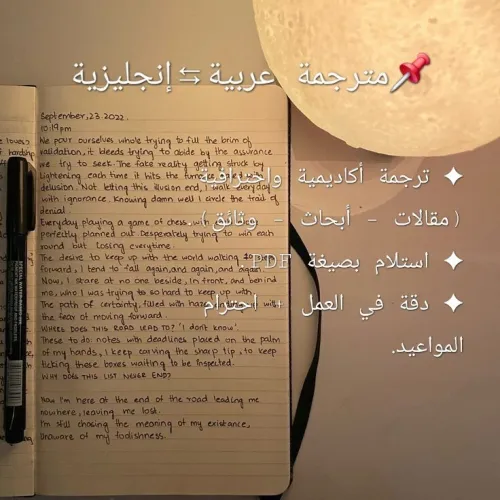 📌مترجمة عربية ⇆ إنجليزية
✦ ترجمة أكاديمية واحترافية
(مقالات – أبحاث – وثائق).
✦ استلام بصيغة PDF
✦ دقة في العمل + احترام
المواعيد.
September, 23. 2022.
10:19pm
We pour ourselves whole trying to fill the brim of
validation, it bleeds trying to abide by the assurance
we try to seek. The fate reality getting struck by
lightening each time it hits the
delusion. Not letting this illusion end, I walk everyday
with ignorance. Knowing damn well I circle the trail of
denial.
Everyday playing a game of chess with
perfectly planned out Desperately trying to win each
round but. Losing everytime.
The desire to keep up with the world walking
forward, I tend to fall again, and again, and again.
Now, I stare at no one beside, in front, and behind
me, who I was trying so hard to keep up with.
The path of certainty, filled with haze, with
the fear of moving forward.
WHERE DOES THIS ROAD LEAD TO? 'I don't know'.
These to do notes with deadlines placed on the palm
of my hands, I keep carving the sharp tip, to keep
ticking these boxes waiting to be inspected.
WHY DOES THIS LIST NEVER END?
Now I'm here at the end of the road leading me
nowhere, leaving me lost.
I'm still chasing the meaning of my existance,
Unaware of my foolishness.